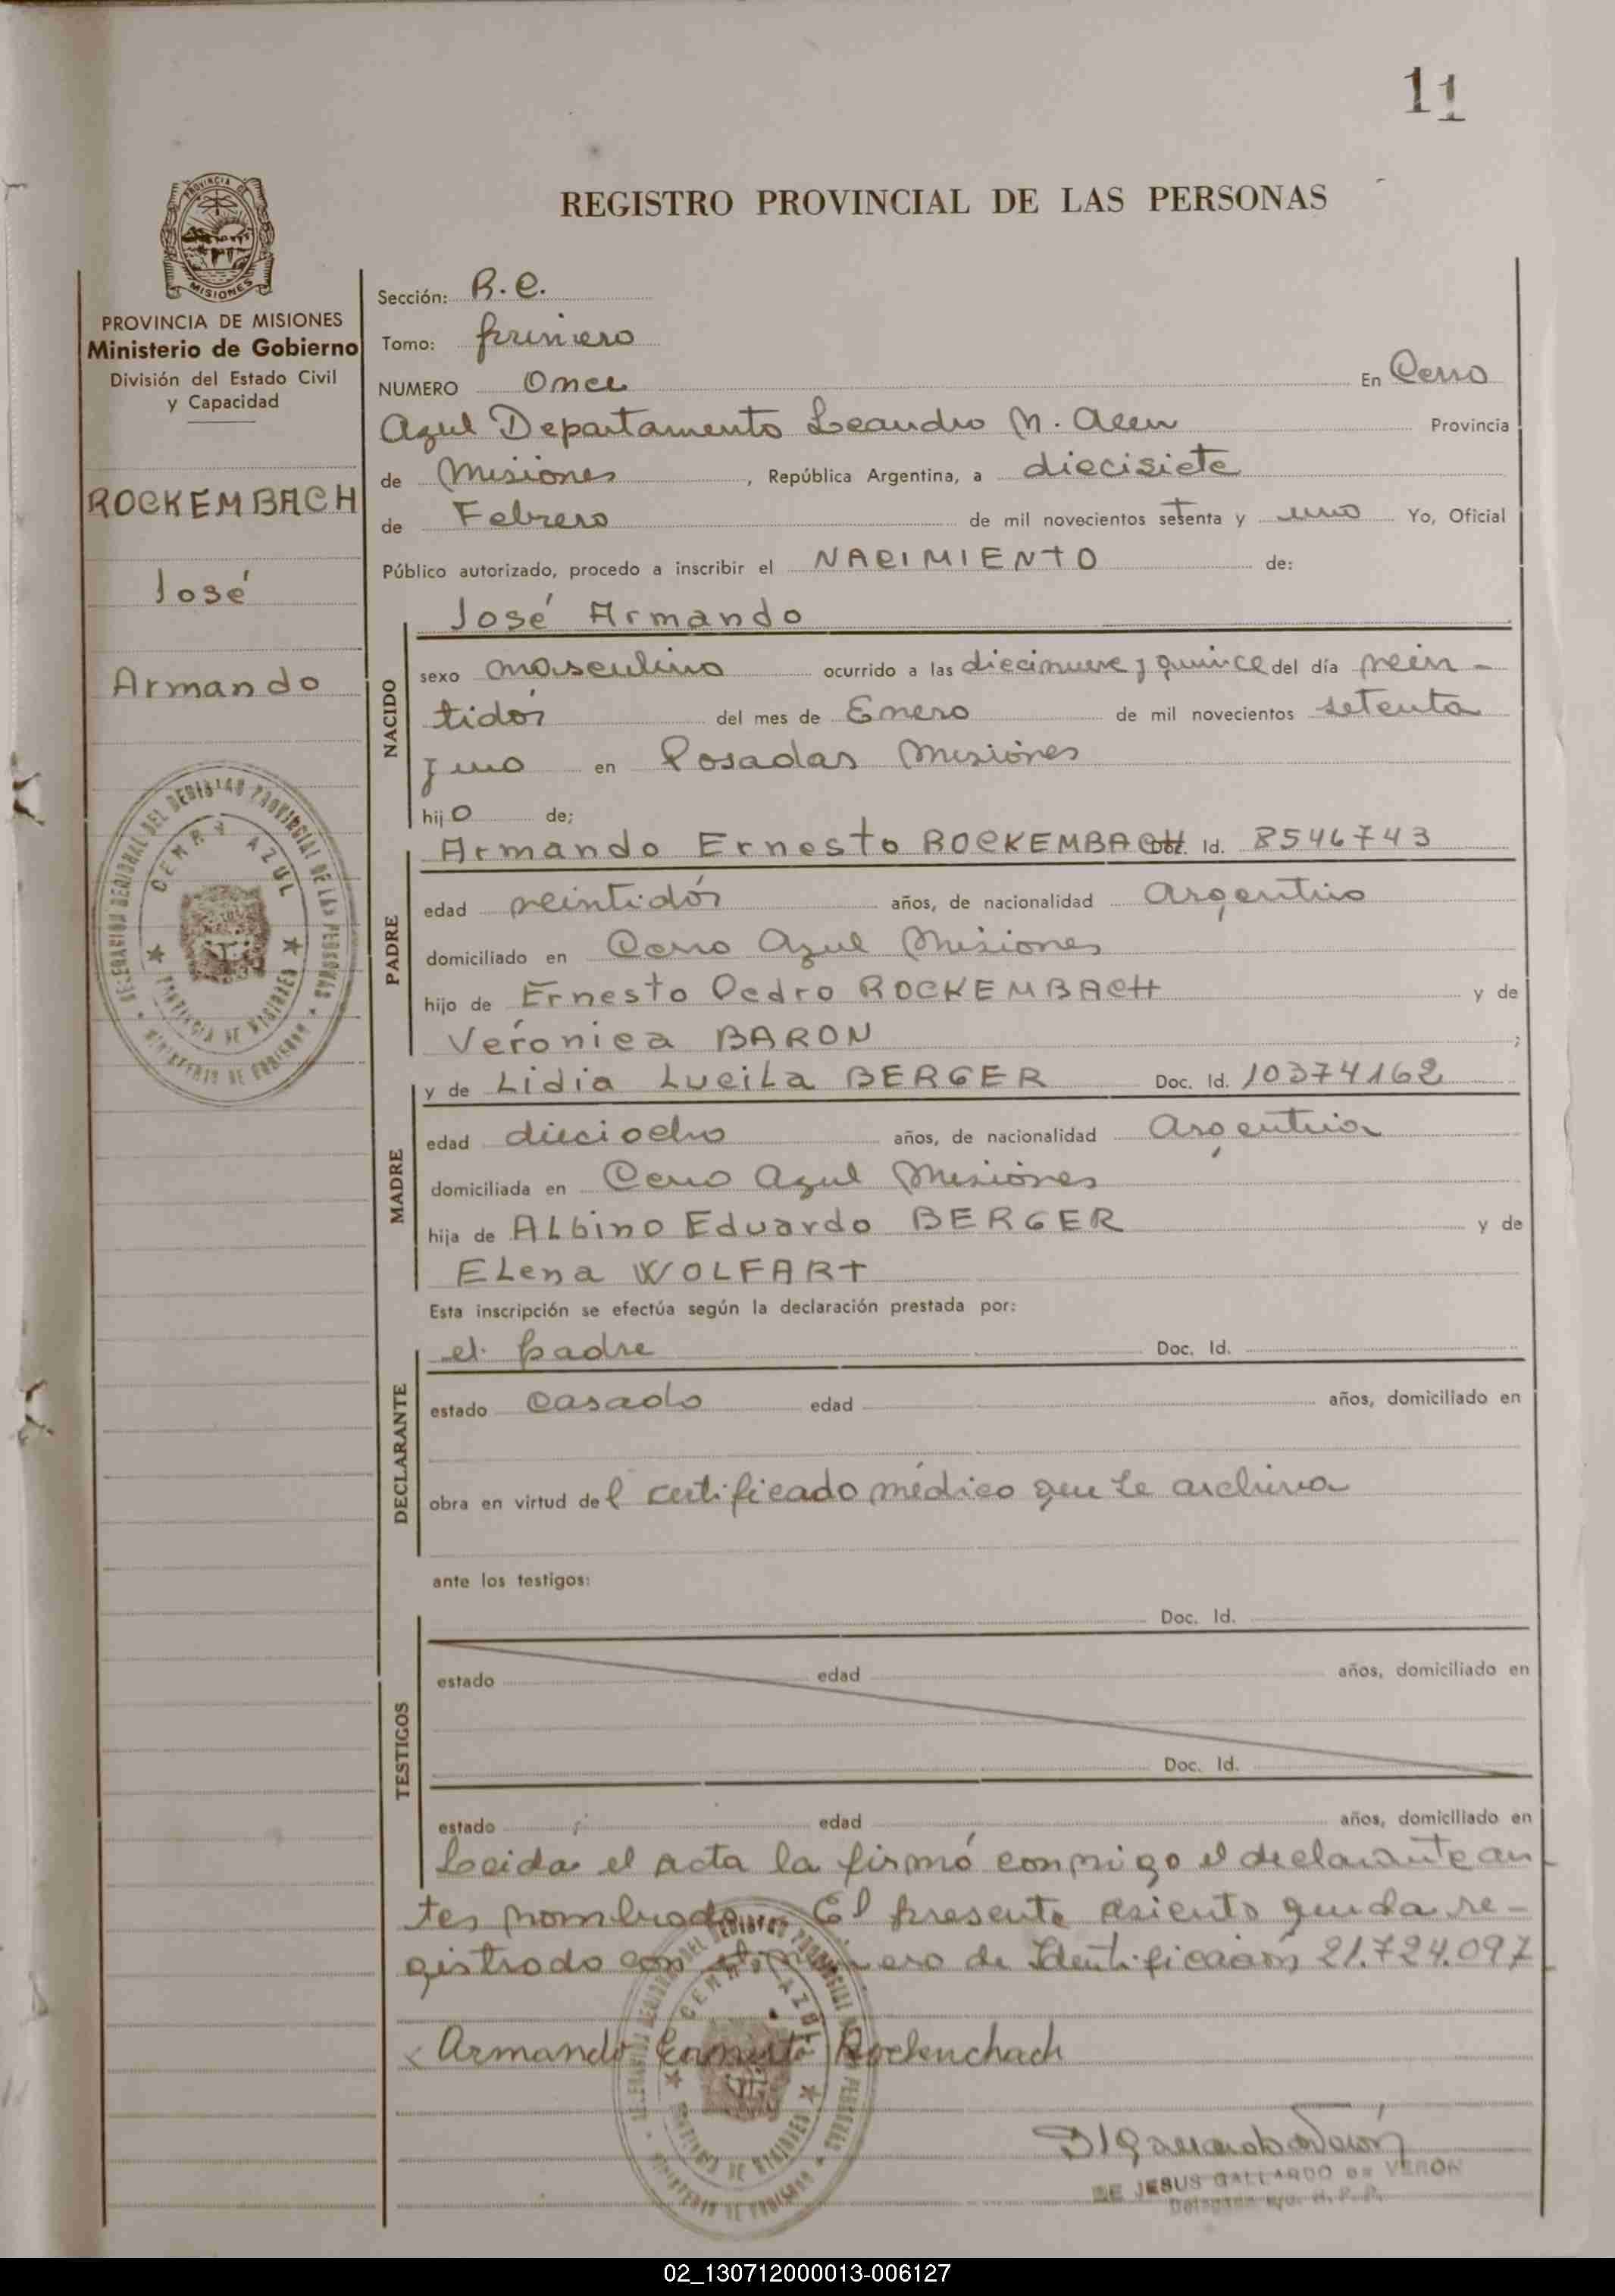 11
REGISTRO PROVINCIAL DE LAS PERSONAS
PROVINCIA DE
MISIONES
PROVINCIA DE MISIONES
Ministerio de Gobierno
División del Estado Civil
y Capacidad
ROCKEMBACH
José
Armando
Sección: R.C.
Tomo: primero
NUMERO Once En Cerro
Azul Departamento Leandro N. Alem Provincia
de Misiones, República Argentina, a diecisiete
de Febrero de mil novecientos setenta y uno Yo, Oficial
Público autorizado, procedo a inscribir el NACIMIENTO de:
José Armando
NACIDO
sexo masculino ocurrido a las diecinueve y quince del día vein-
tidós del mes de Enero de mil novecientos setenta
y uno en Posadas Misiones
hijo de;
PADRE
Armando Ernesto ROCKEMBACH Id. 8546743
edad veintidós años, de nacionalidad Argentino
domiciliado en Cerro Azul Misiones
hijo de Ernesto Pedro ROCKEMBACH y de
Verónica BARON ;
MADRE
y de Lidia Lucila BERGER Doc. Id. 10374162
edad dieciocho años, de nacionalidad Argentina
domiciliada en Cerro Azul Misiones
hija de Albino Eduardo BERGER y de
Elena WOLFART
Esta inscripción se efectúa según la declaración prestada por:
DECLARANTE
el padre Doc. Id.
estado casado edad años, domiciliado en
obra en virtud del certificado médico que se archiva
ante los testigos:
TESTIGOS
Doc. Id.
estado edad años, domiciliado en
Doc. Id.
estado edad años, domiciliado en
Leida el acta la firmó conmigo el declarante an-
tes nombrado. El presente asiento queda re-
gistrado con el número de Identificación 21.724.097
Armando Ernesto Rockenchach
DE JESUS GALLARDO DE VERON
DELEGACION REGIONAL DEL REGISTRO PROVINCIAL DE LAS PERSONAS
CERRO AZUL
PROVINCIA DE MISIONES
MINISTERIO DE GOBIERNO
02_130712000013-006127